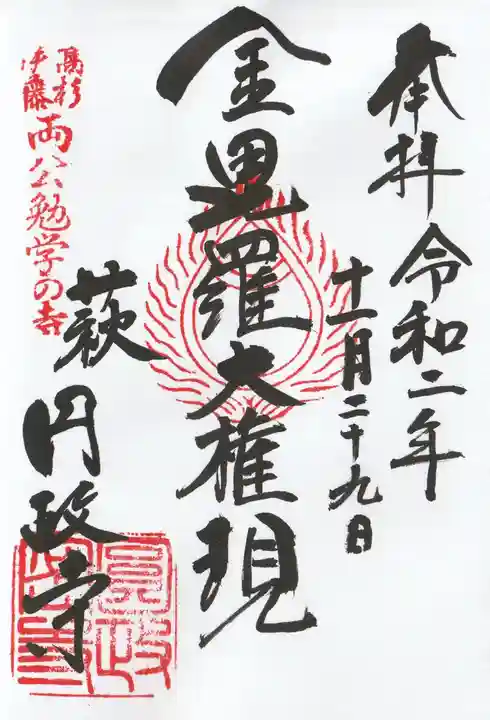 奉拝 令和二年
十一月二十九日
金毘羅大権現
萩 円政寺
高杉
伊藤
両公勉学の寺